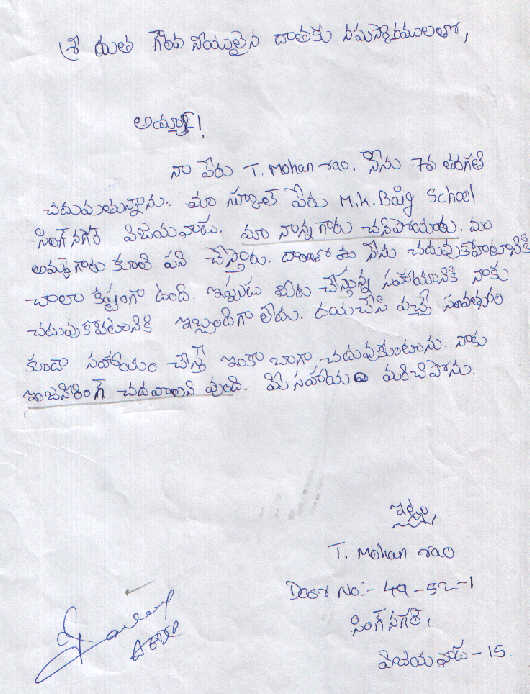 శ్రీ యుత గౌరవనీయులైన దాతకు నమస్కారములతో,
అయ్యా!
నా పేరు T. Mohan rao. నేను 7వ తరగతి
చదువుతున్నాను. మా స్కూల్ పేరు M.K. Baig School
సింగ్ నగర్ విజయవాడ. మా నాన్న గారు చనిపోయారు. మా
అమ్మగారు కూలి పని చేస్తారు. నేను చదువుకోటానికి
చాలా కష్టంగా ఉంది. ఇప్పుడు మీరు చేస్తున్న సహాయానికి నాకు
చదువుకోటానికి ఇబ్బందిగా లేదు. దయచేసి వచ్చే సంవత్సరం
కూడా సహాయం చేస్తే ఇంకా బాగా చదువుకుంటాను. నాకు
ఇంజనీరింగ్ చదవాలని వుంది. మీ సహాయం మరిచిపోను.
ఇట్లు
T. Mohan rao
Door No:- 49-52-1
సింగ్ నగర్,
విజయవాడ - 15